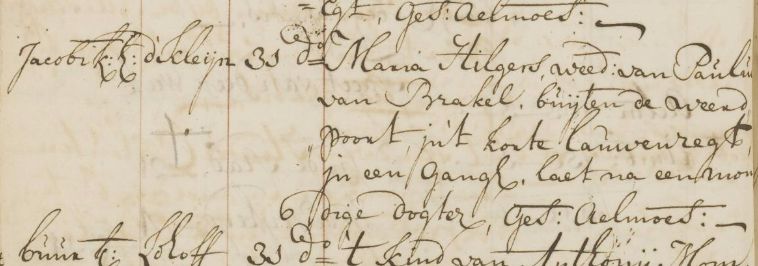 = Egt, Ges: Aelmoes:
Jacobi k: k: d'Kleijn 31 do Maria Hilgers, weed: van Paulus
van Brakel, buijten de weerd
poort, in't korte Lauwenregt,
in een Gangh, laet na een mon
6 dige dogter, Ges: Aelmoes:
buur k: 31 do t kind van Anthonij Mom